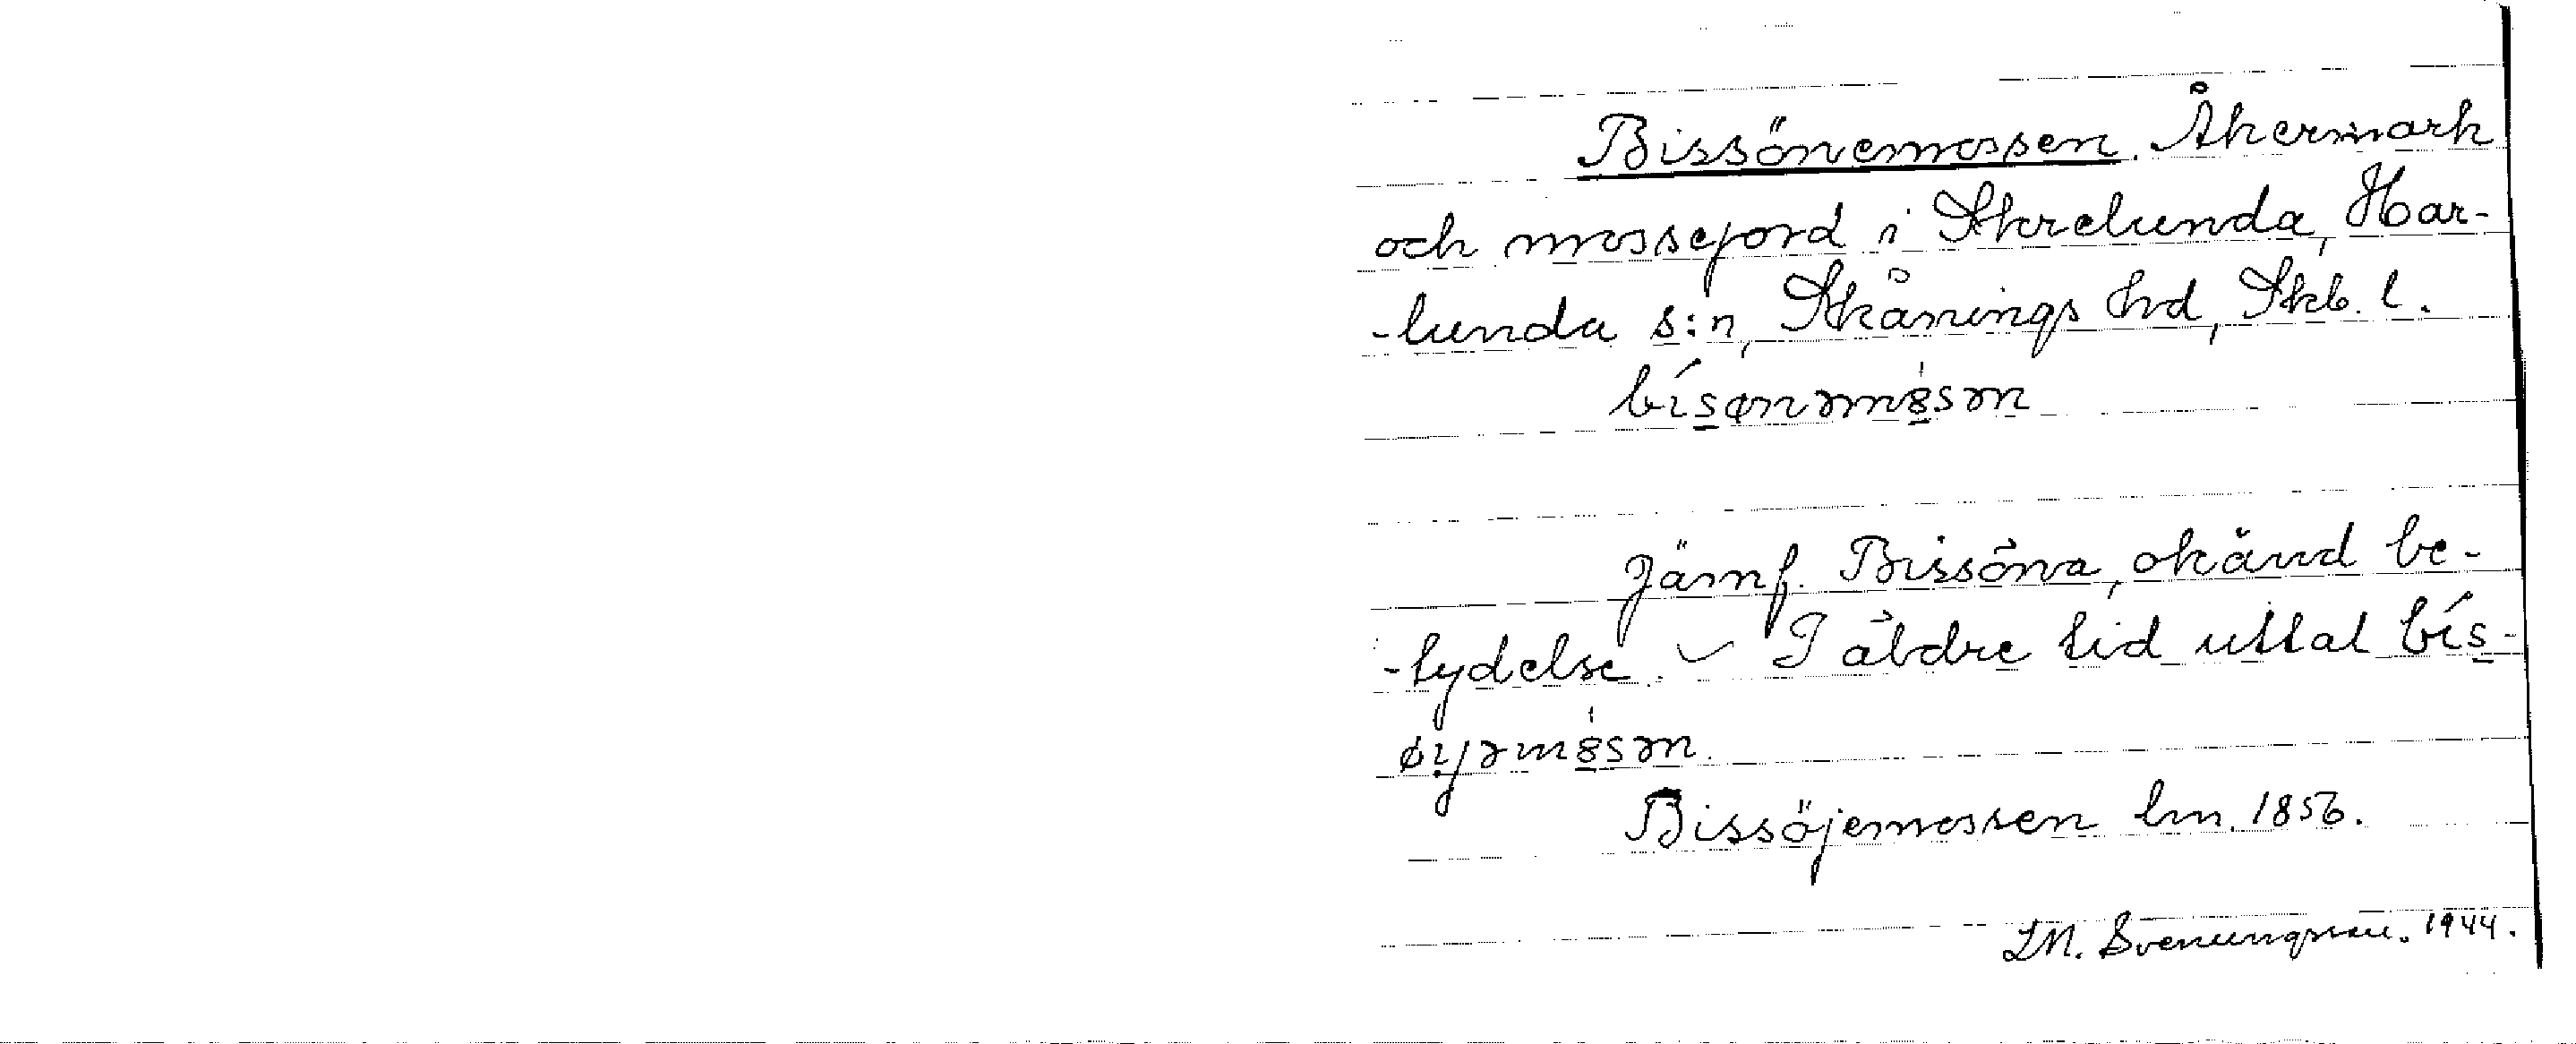 Bissönemossen. Åkermark
och mossejord i Skrelunda, Har-
-lunda s:n, Skånings hd, Skb. l.
bísønəmòsən
Jämf. Bissöna, okänd be-
-tydelse. I äldre tid uttal bís-
øyəmòsən.
Bissöjemossen lm. 1856.
LM. Svenungsson. 1944.